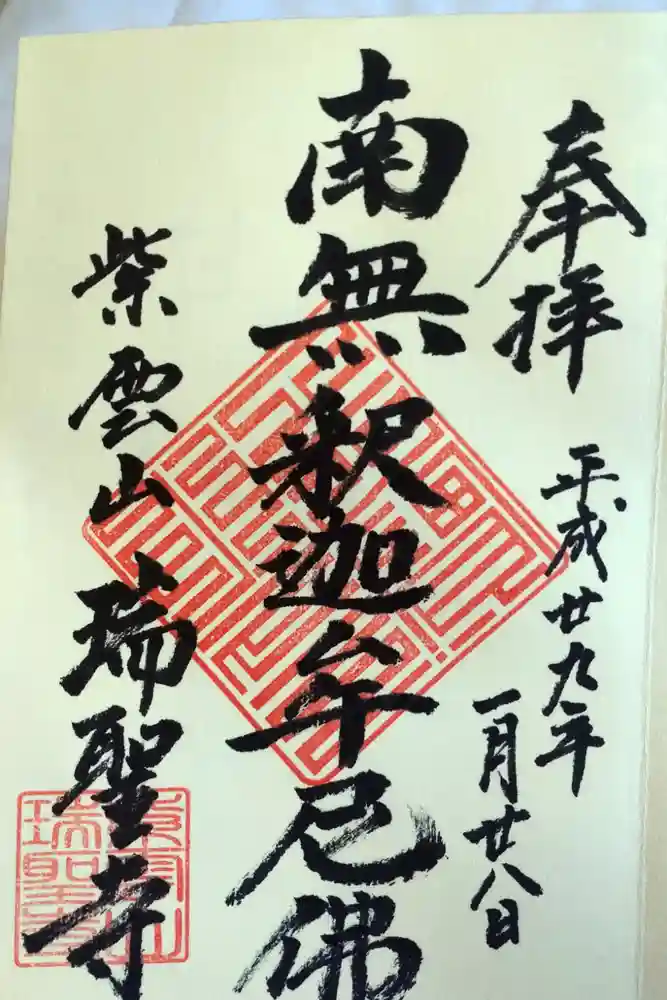 奉拝
平成廿九年
一月廿八日
南無釈迦牟尼佛
紫雲山 瑞聖寺